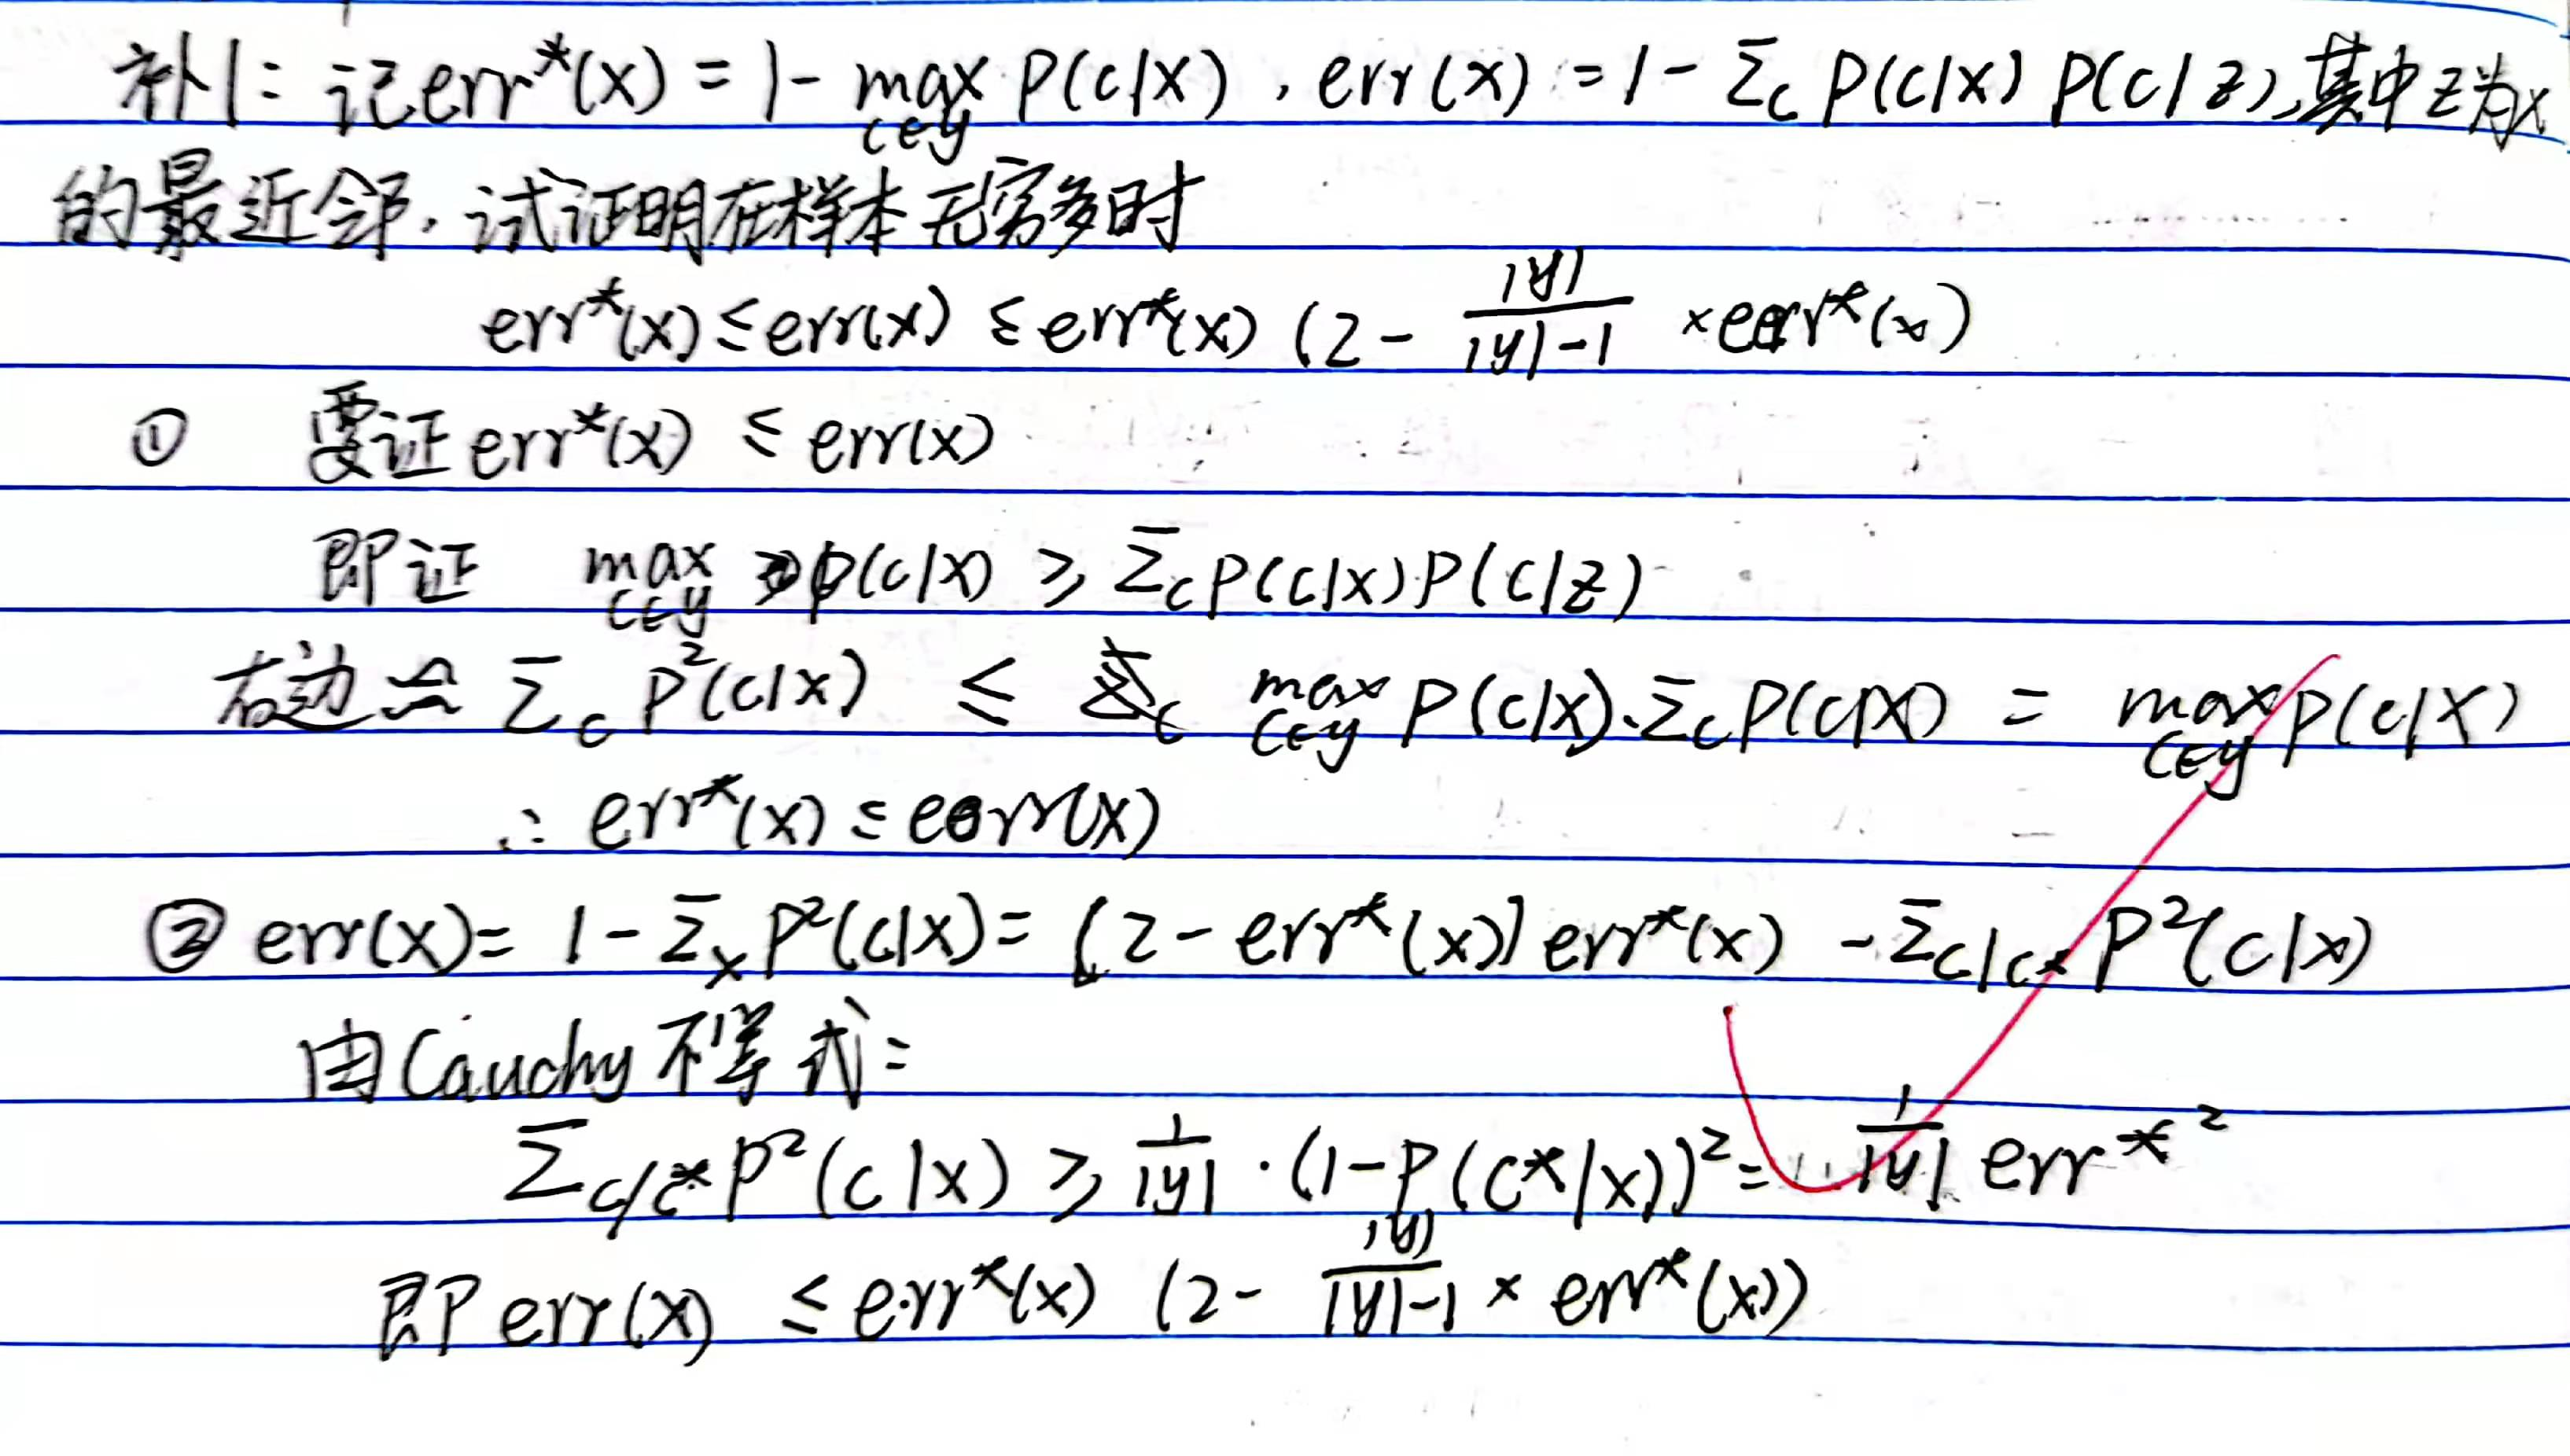 补1: 记err*(x) = 1 - max_{c∈y} P(c|x), err(x) = 1 - Σ_c P(c|x) P(c|z), 其中z为x
的最近邻. 试证明在样本无穷多时
err*(x) ≤ err(x) ≤ err*(x) (2 - |y|/(|y|-1) × err*(x)
① 要证 err*(x) ≤ err(x)
即证 max_{c∈y} P(c|x) ≥ Σ_c P(c|x) P(c|z)
右边 ≈ Σ_c P²(c|x) ≤ max_{c∈y} P(c|x)·Σ_c P(c|x) = max_{c∈y} P(c|x)
∴ err*(x) ≤ err(x)
② err(x) = 1 - Σ_x P²(c|x) = (2 - err*(x)) err*(x) - Σ_{c|c*} P²(c|x)
由Cauchy不等式:
Σ_{c/c*} P²(c|x) ≥ 1/|y| · (1-P(c*|x))² = 1/|y| err*²
即 err(x) ≤ err*(x) (2 - |y|/(|y|-1) × err*(x))